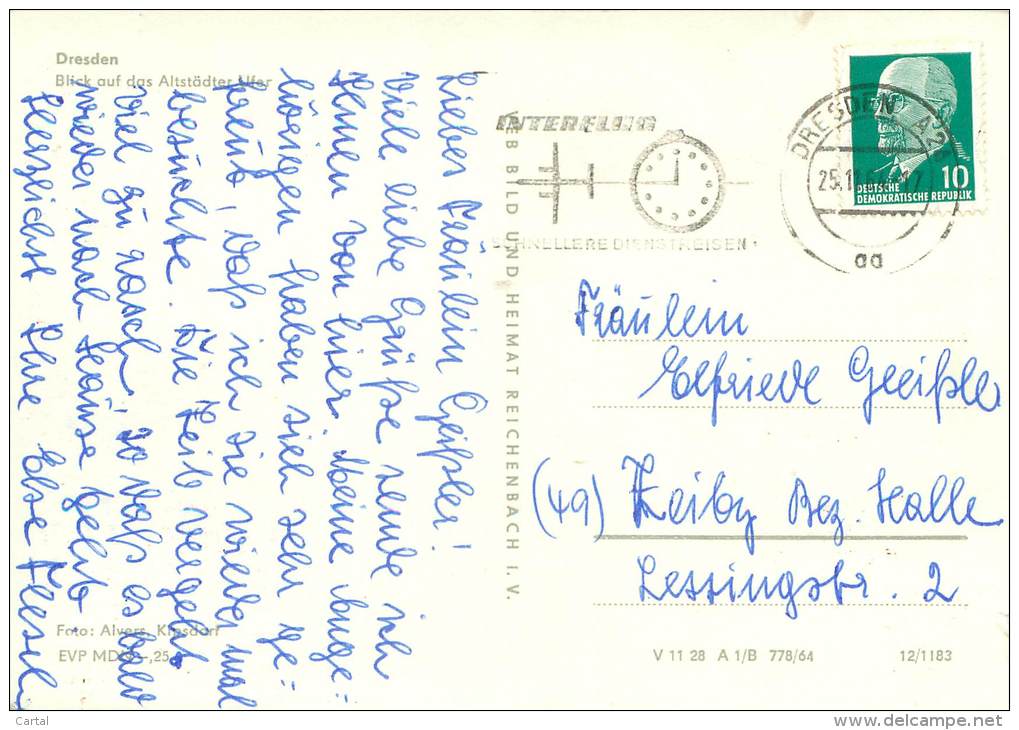 Dresden
Blick auf das Altstädter Ufer
Lieber Fräulein Geißler!
Viele liebe Grüße sende ich
Ihnen von hier. Meine Ange=
hörigen haben sich sehr ge=
freut, daß ich sie wieder mal
besuchte. Die Zeit vergeht
viel zu rasch, so daß es bald
wieder nach Hause geht.
Herzlichst Ihre Else
Foto: Alvers, Kipsdorf
EVP MDN -,25
VEB BILD UND HEIMAT REICHENBACH I. V.
INTERFLUG
SCHNELLERE DIENSTREISEN
DRESDEN A24
aa
10
DEUTSCHE
DEMOKRATISCHE REPUBLIK
Fräulein
Elfriede Geeißler
(49) Zeitz Bez. Halle
Lessingstr. 2
V 11 28 A 1/B 778/64
12/1183
Cartal
www.delcampe.net